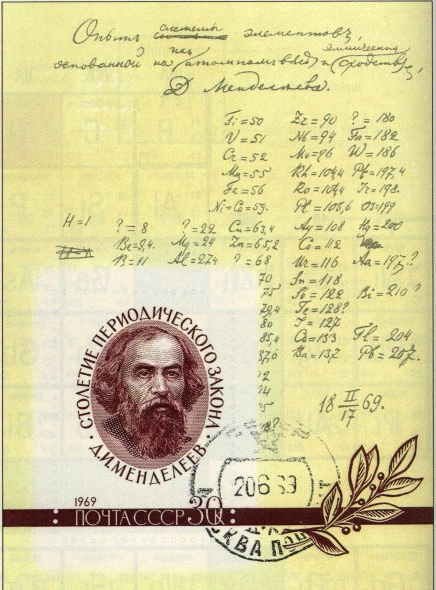 Опытъ системы элементовъ,
основанной на ихъ атомномъ весе и химическом сходстве,
Д. Менделеева.
Ti=50 Zr=90 ?=180
V=51 Nb=94 Ta=182
Cr=52 Mo=96 W=186
Mn=55 Rh=104,4 Pt=197,4
Fe=56 Ro=104,4 Ir=198.
Ni=Co=59. Pl=106,6 Os=199
H=1 ?=8 ?=22 Cu=63,4 Ag=108 Hg=200
Be=9,4. Mg=24 Zn=65,2 Cd=112
B=11 Al=27,4 ?68 Ur=116 Au=197?
70 Sn=118
75 Sb=122 Bi=210?
79,4 Te=128?
80 I=127
85,4 Cs=133 Tl=204
87,6 Ba=137 Pb=207.
18 II/17 69.
СТОЛЕТИЕ ПЕРИОДИЧЕСКОГО ЗАКОНА
• Д.И.МЕНДЕЛЕЕВ •
206 69
1969
ПОЧТА СССР 30К